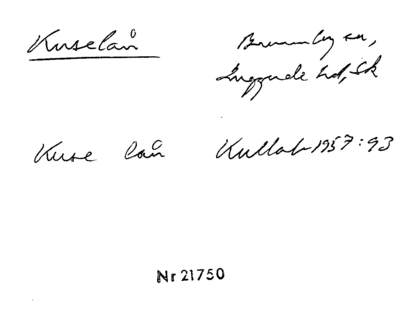 Kuselån Brunnby sn,
Luggude hd, Sk
Kuse lån Kullab 1957:93
Nr 21750